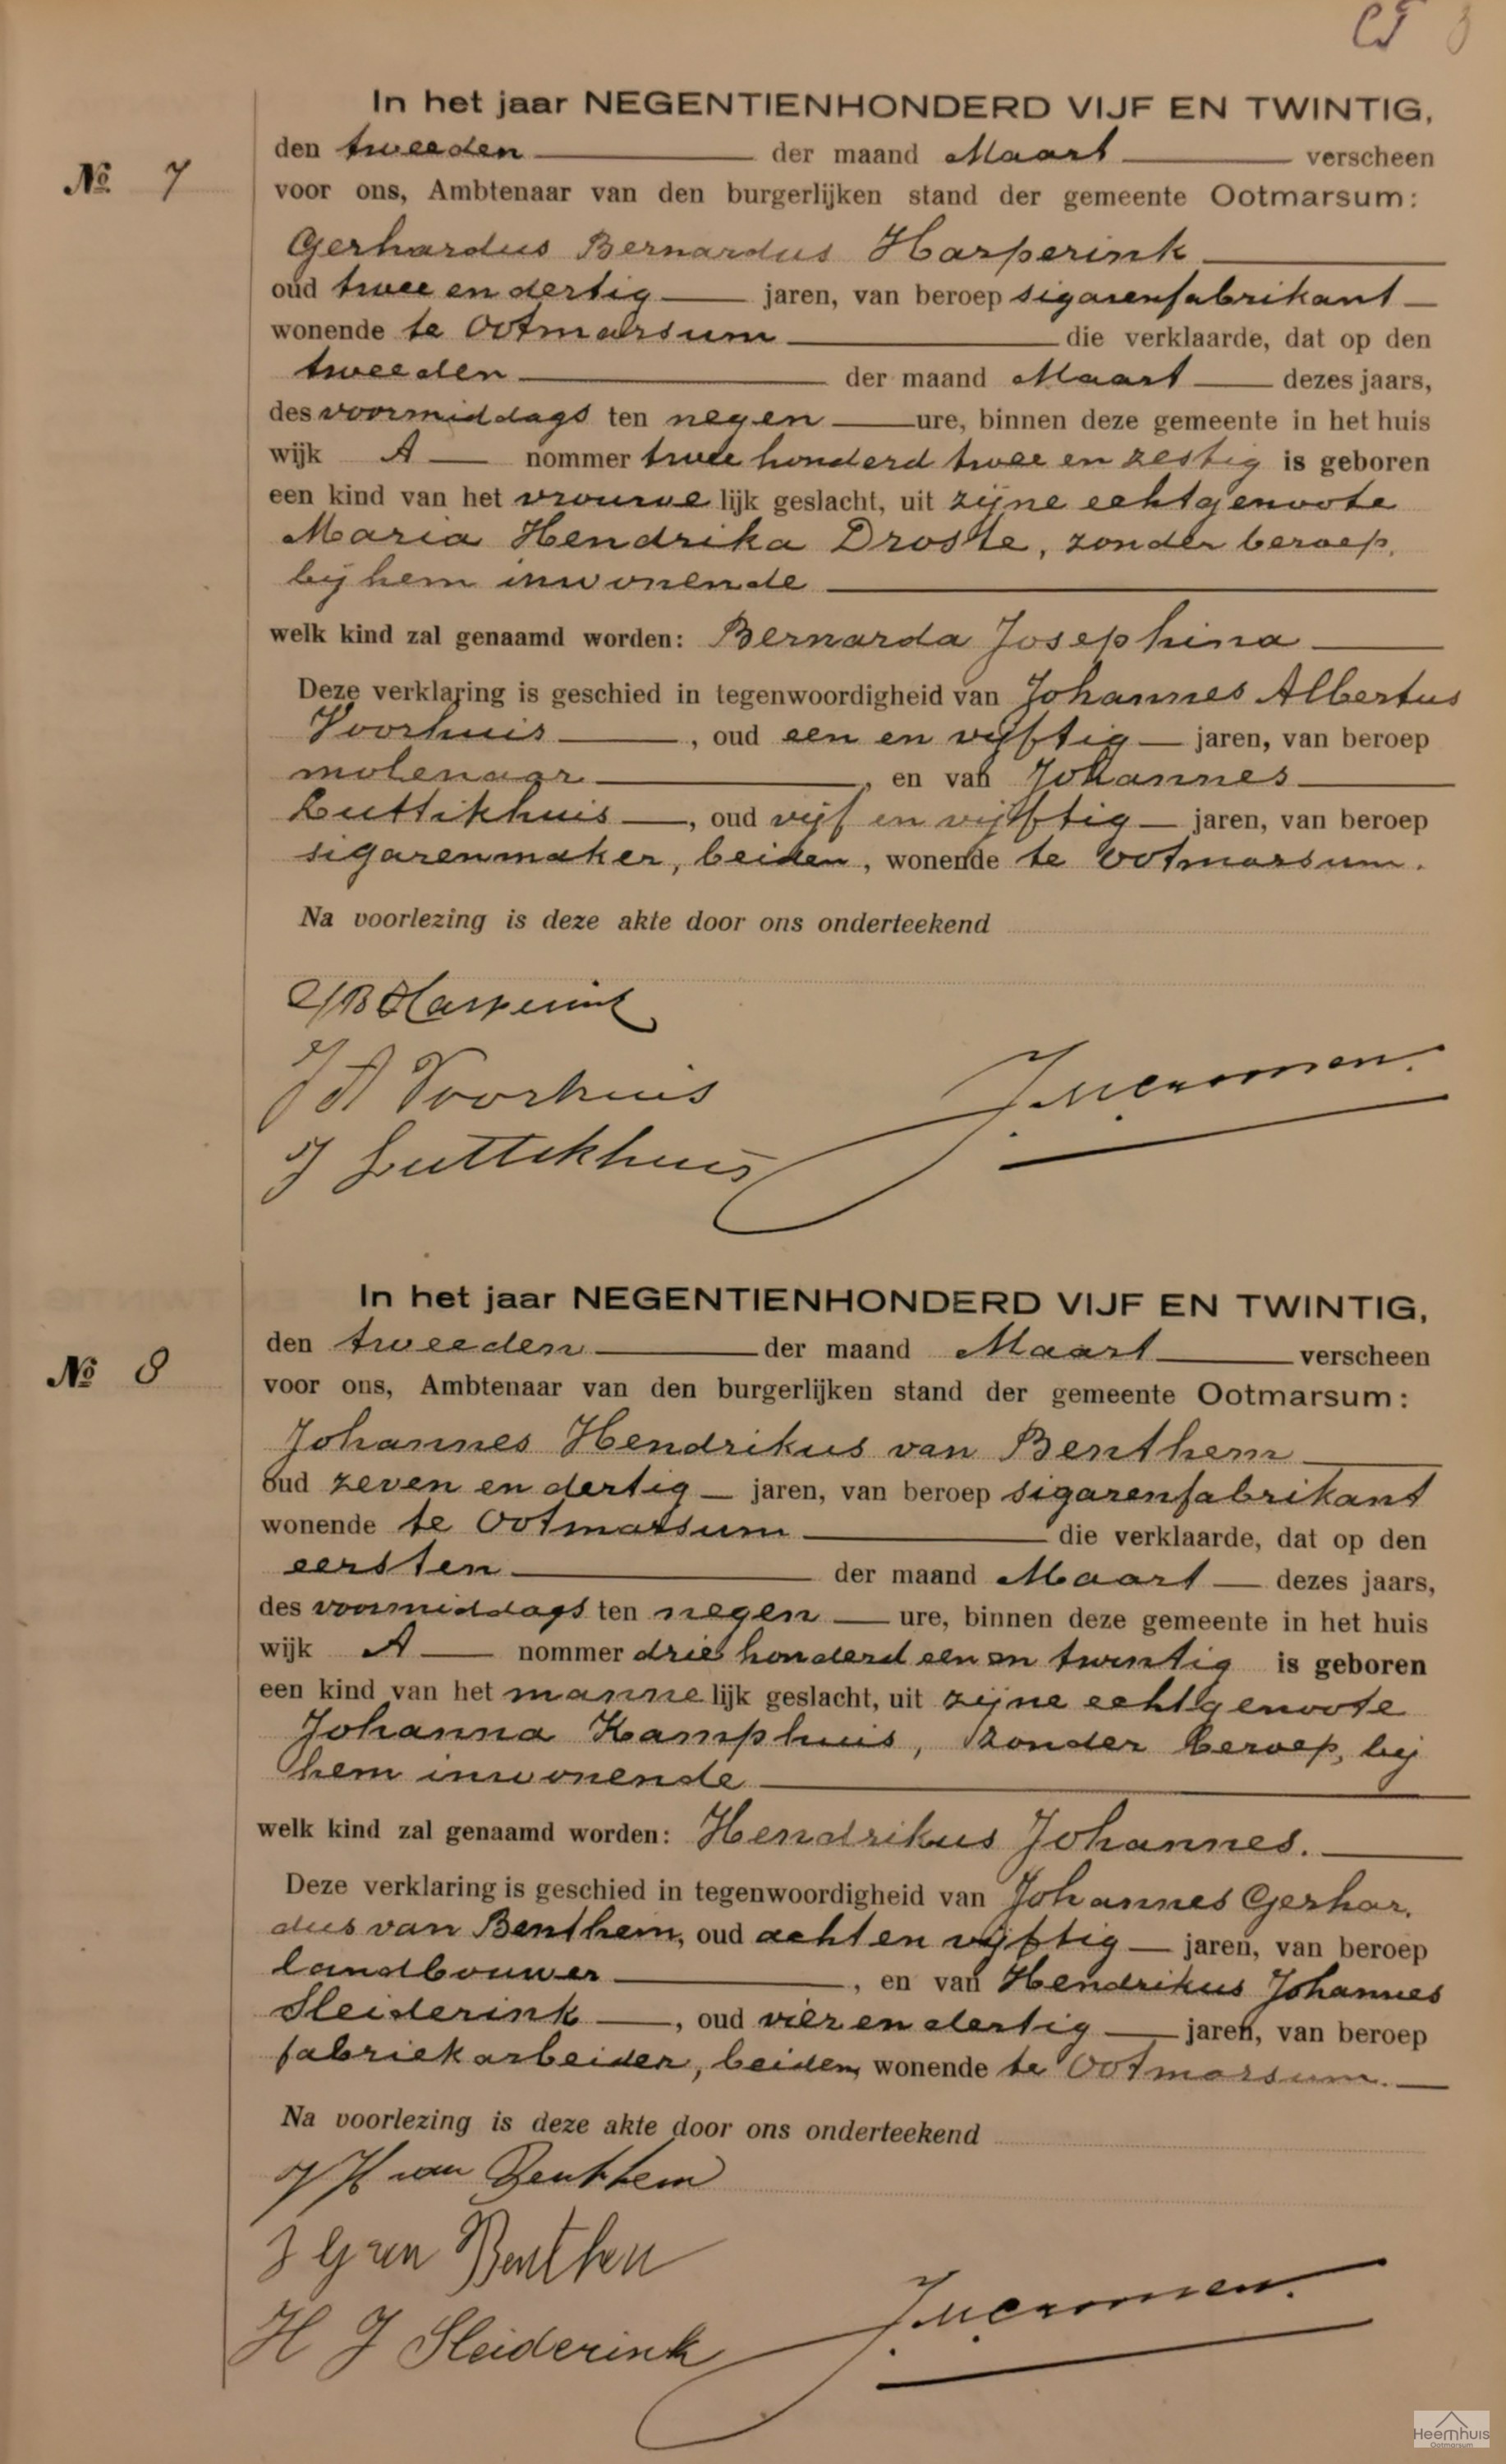 In het jaar NEGENTIENHONDERD VIJF EN TWINTIG,
den tweeden der maand Maart verscheen
No 7
voor ons, Ambtenaar van den burgerlijken stand der gemeente Ootmarsum:
Gerhardus Bernardus Harperink
oud twee en dertig jaren, van beroep sigarenfabrikant
wonende te Ootmarsum die verklaarde, dat op den
tweeden der maand Maart dezes jaars,
des voormiddags ten negen ure, binnen deze gemeente in het huis
wijk A nommer twee honderd twee en zestig is geboren
een kind van het vrouwelijk geslacht, uit zijne echtgenoote
Maria Hendrika Droste, zonder beroep,
bij hem inwonende
welk kind zal genaamd worden: Bernarda Josephina
Deze verklaring is geschied in tegenwoordigheid van Johannes Albertus
Voorhuis, oud een en vijftig jaren, van beroep
molenaar, en van Johannes
Luttikhuis, oud vijf en vijftig jaren, van beroep
sigarenmaker, beiden, wonende te Ootmarsum.
Na voorlezing is deze akte door ons onderteekend
GB Harperink
J A Voorhuis
J Luttikhuis
In het jaar NEGENTIENHONDERD VIJF EN TWINTIG,
den tweeden der maand Maart verscheen
No 8
voor ons, Ambtenaar van den burgerlijken stand der gemeente Ootmarsum:
Johannes Hendrikus van Benthem
oud zeven en dertig jaren, van beroep sigarenfabrikant
wonende te Ootmarsum die verklaarde, dat op den
eersten der maand Maart dezes jaars,
des voormiddags ten negen ure, binnen deze gemeente in het huis
wijk A nommer drie honderd een en twintig is geboren
een kind van het mannelijk geslacht, uit zijne echtgenoote
Johanna Kamphuis, zonder beroep, bij
hem inwonende
welk kind zal genaamd worden: Hendrikus Johannes.
Deze verklaring is geschied in tegenwoordigheid van Johannes Gerhar
dus van Benthem, oud acht en vijftig jaren, van beroep
landbouwer, en van Hendrikus Johannes
Sleiderink, oud vier en dertig jaren, van beroep
fabriekarbeider, beiden, wonende te Ootmarsum.
Na voorlezing is deze akte door ons onderteekend
J H van Benthem
J G van Benthem
H J Sleiderink
Heemhuis
Ootmarsum